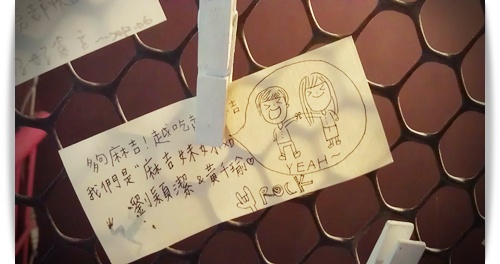 夠麻吉！越吃越
吉
我們是"麻吉妹妹
劉穎潔&黃千瑜
YEAH~
ROCK